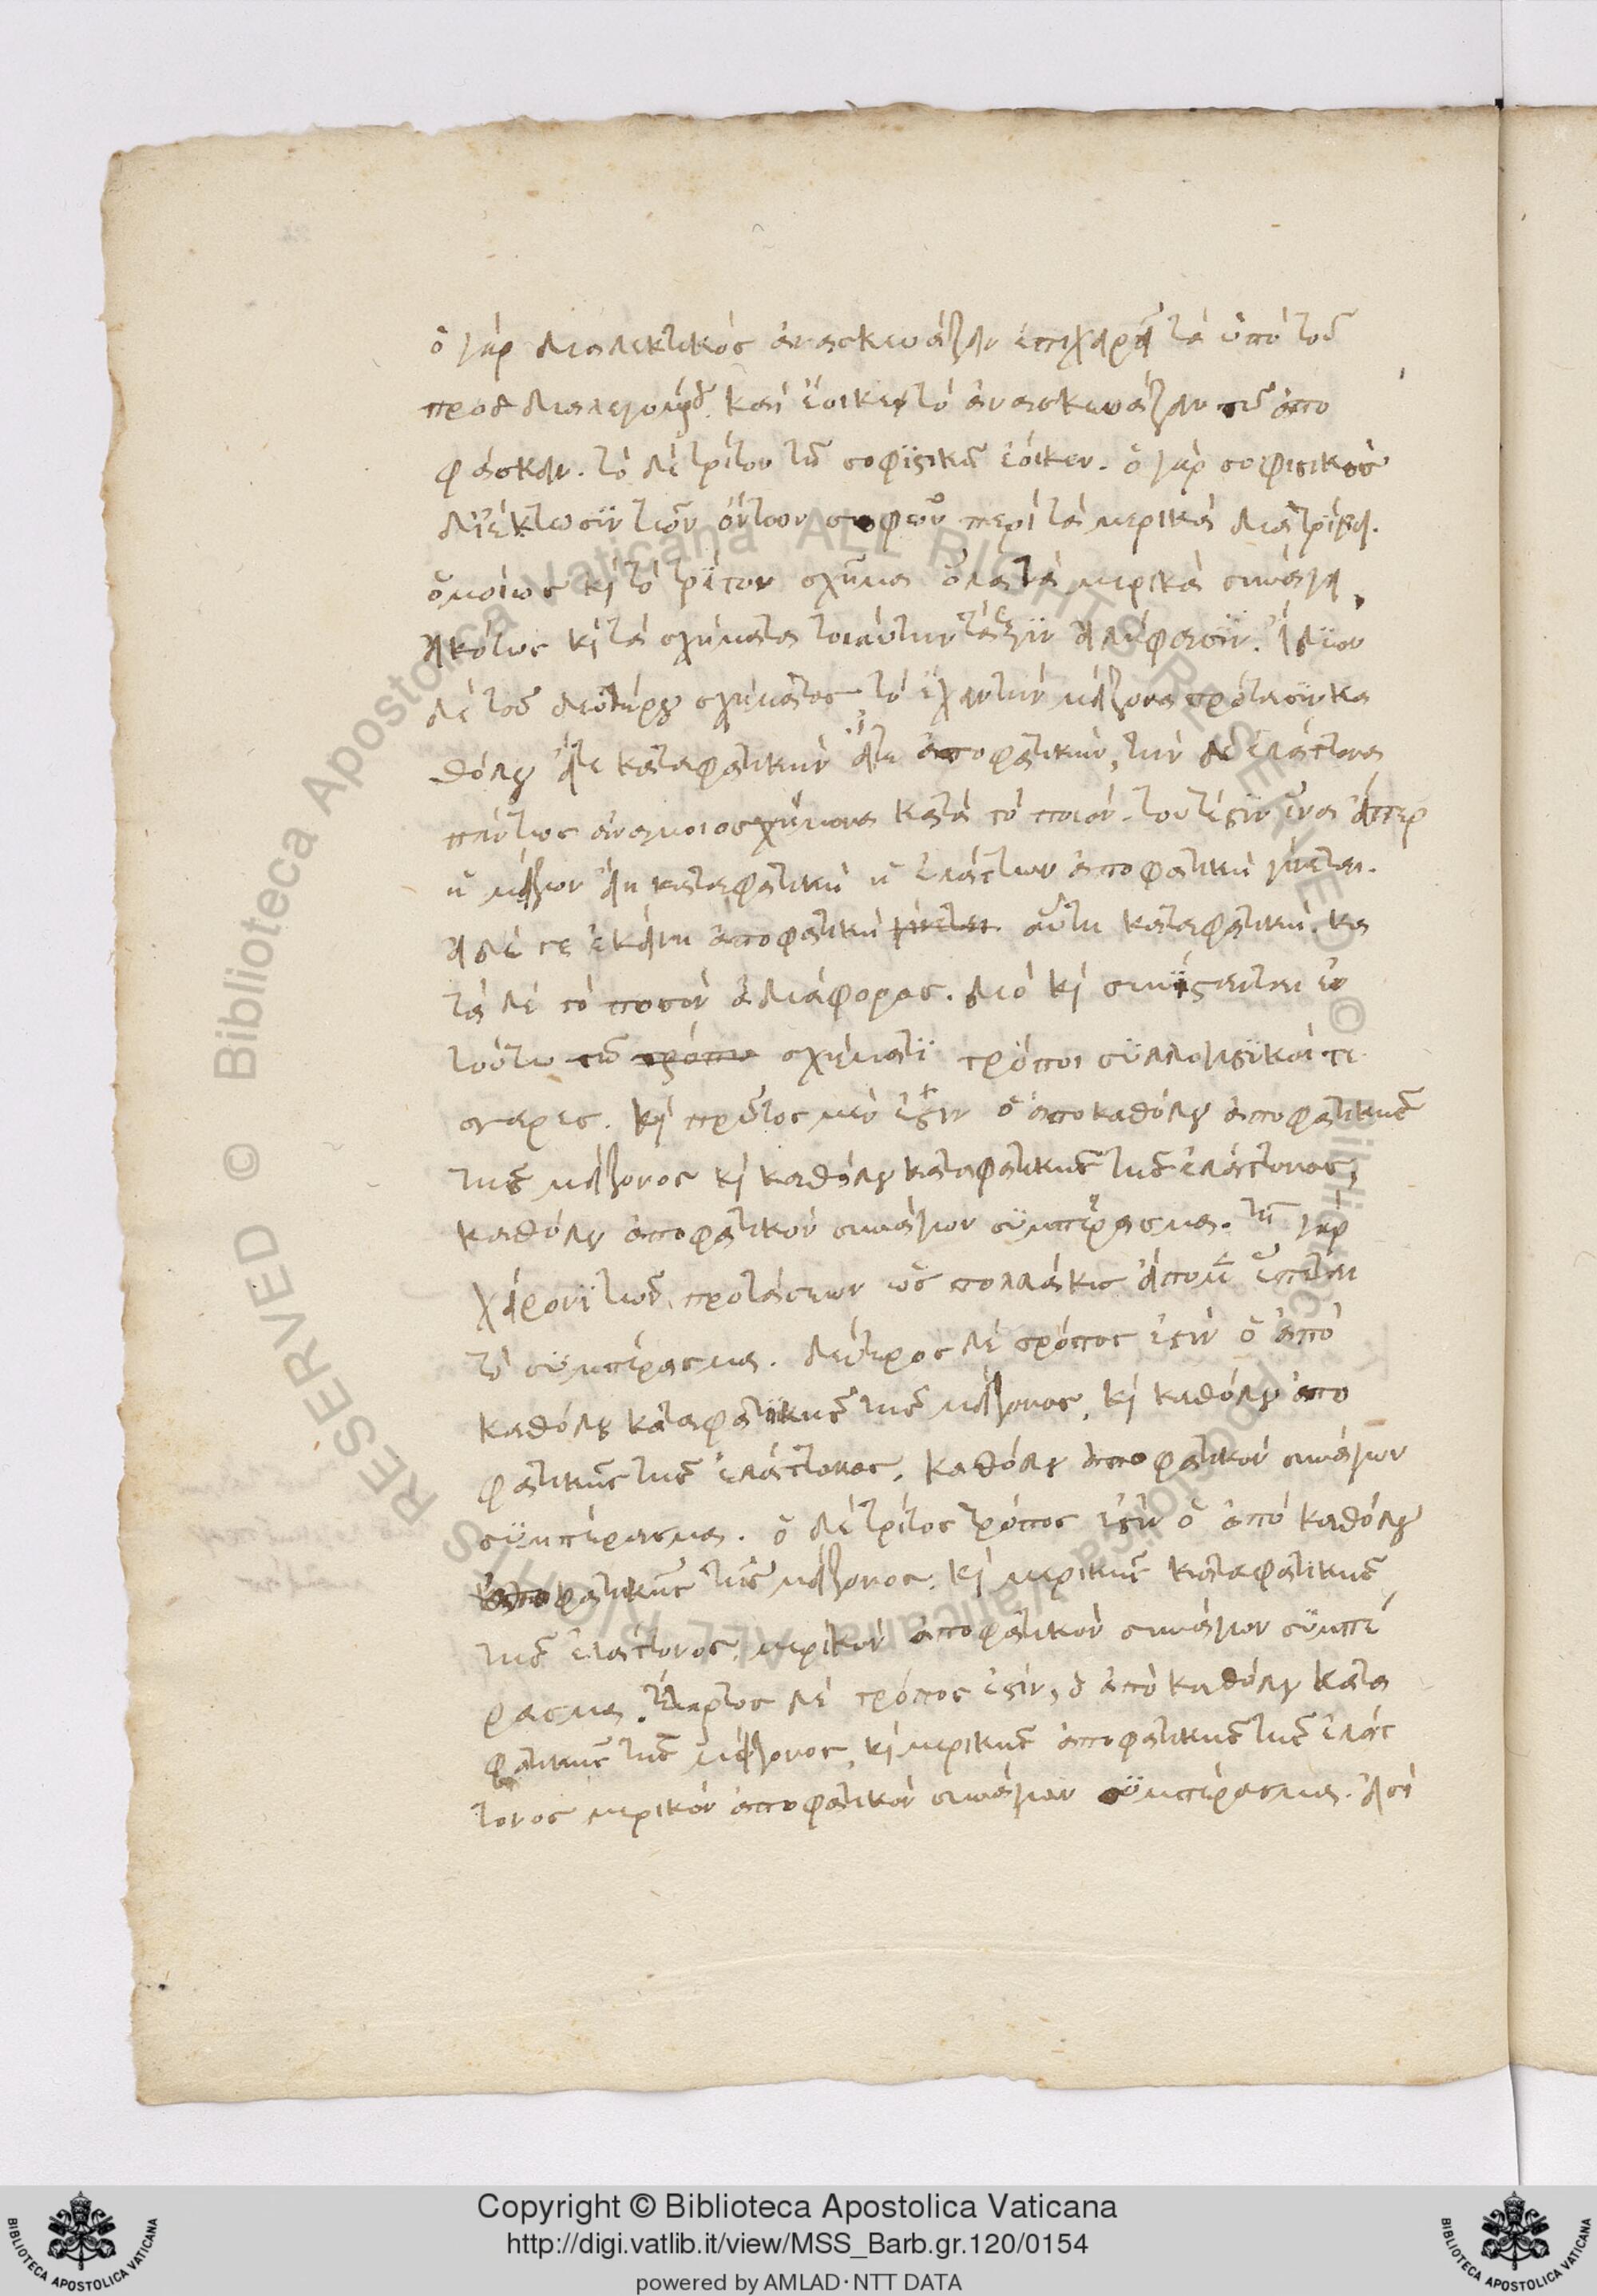 ὁ γὰρ διαλεκτικὸς ἀνασκευάζειν ἐπιχειρεῖ τὰ ὑπὸ τοῦ
προσδιαλεγομένου. καὶ ἔοικε τὸ ἀνασκευάζειν τῷ ἀπο
φάσκειν. τὸ δὲ τρίτον τῷ σοφιστικῷ ἔοικεν. ὁ γὰρ σοφιστικὸς
τῶν ὄντων περὶ τὰ μερικὰ διατρίβει.
ὁμοίως καὶ τὸ τρίτον σχῆμα ὅλα τὰ μερικὰ συνάγει,
εἰκότως καὶ τὰ σχήματα τοιαύτην τάξιν εἰλήφασιν. ἴδιον
δὲ τοῦ δευτέρου σχήματος τὸ ἔχειν τὴν μείζονα πρότασιν κα
θόλου εἴτε καταφατικὴν εἴτε ἀποφατικὴν, τὴν δὲ ἐλάττονα
πάντως ἀνομοιοσχήμονα κατὰ τὸ ποιὸν. τουτέστιν ἵνα εἴπερ
ἡ μείζων εἴη καταφατικὴ ἡ ἐλάττων ἀποφατικὴ γίνεται.
εἰ δέ γε ἐκείνη ἀποφατικὴ γίνεται αὕτη καταφατικὴ. κα
τὰ δὲ τὸ ποσὸν ἀδιάφορος. διὸ καὶ συνίστανται ἐν
τούτῳ τῷ τρόπῳ σχήματι τρόποι συλλογιστικοὶ τέ
σσαρες. καὶ πρῶτος μέν ἐστιν ὁ ἀπὸ καθόλου ἀποφατικῆς
τῆς μείζονος καὶ καθόλου καταφατικῆς τῆς ἐλάττονος,
καθόλου ἀποφατικὸν συνάγων συμπέρασμα. τῇ γὰρ
χείρονι τῶν προτάσεων ὡς πολλάκις εἴπομεν ἕπεται
τὸ συμπέρασμα. δεύτερος δὲ τρόπος ἐστὶν ὁ ἀπὸ
καθόλου καταφατικῆς τῆς μείζονος, καὶ καθόλου ἀπο
φατικῆς τῆς ἐλάττονος, καθόλου ἀποφατικὸν συνάγων
συμπέρασμα. ὁ δὲ τρίτος τρόπος ἐστὶν ὁ ἀπὸ καθόλου
ἀποφατικῆς τῆς μείζονος, καὶ μερικῆς καταφατικῆς
τῆς ἐλάττονος, μερικὸν ἀποφατικὸν συνάγων συμπέ
ρασμα. τέταρτος δὲ τρόπος ἐστίν, ὁ ἀπὸ καθόλου κατα
φατικῆς τῆς μείζονος, καὶ μερικῆς ἀποφατικῆς τῆς ἐλάτ
τονος μερικὸν ἀποφατικὸν συνάγων συμπέρασμα. εἰσὶ
RESERVED © Biblioteca Apostolica Vaticana ALL RIGHTS RESERVED © Biblioteca Apostolica Vaticana ALL RIGHTS
Copyright © Biblioteca Apostolica Vaticana
http://digi.vatlib.it/view/MSS_Barb.gr.120/0154
powered by AMLAD·NTT DATA
BIBLIOTECA APOSTOLICA VATICANA
BIBLIOTECA APOSTOLICA VATICANA